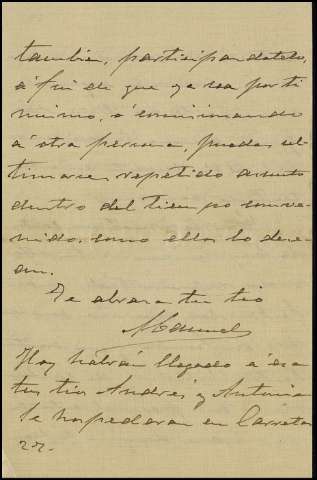 tambien, participandotelo,
á fin de que ya sea por ti
mismo, ó comisionando
á otra persona, puedas ul-
timar ese repetido asunto
dentro del tiempo conve-
nido, como ellos lo dese-
an.
Te abraza tu tio
Manuel
Hoy habrán llegado á esa
tus tios Andrés y Antonia
Se hospedaran en Carretas
27.